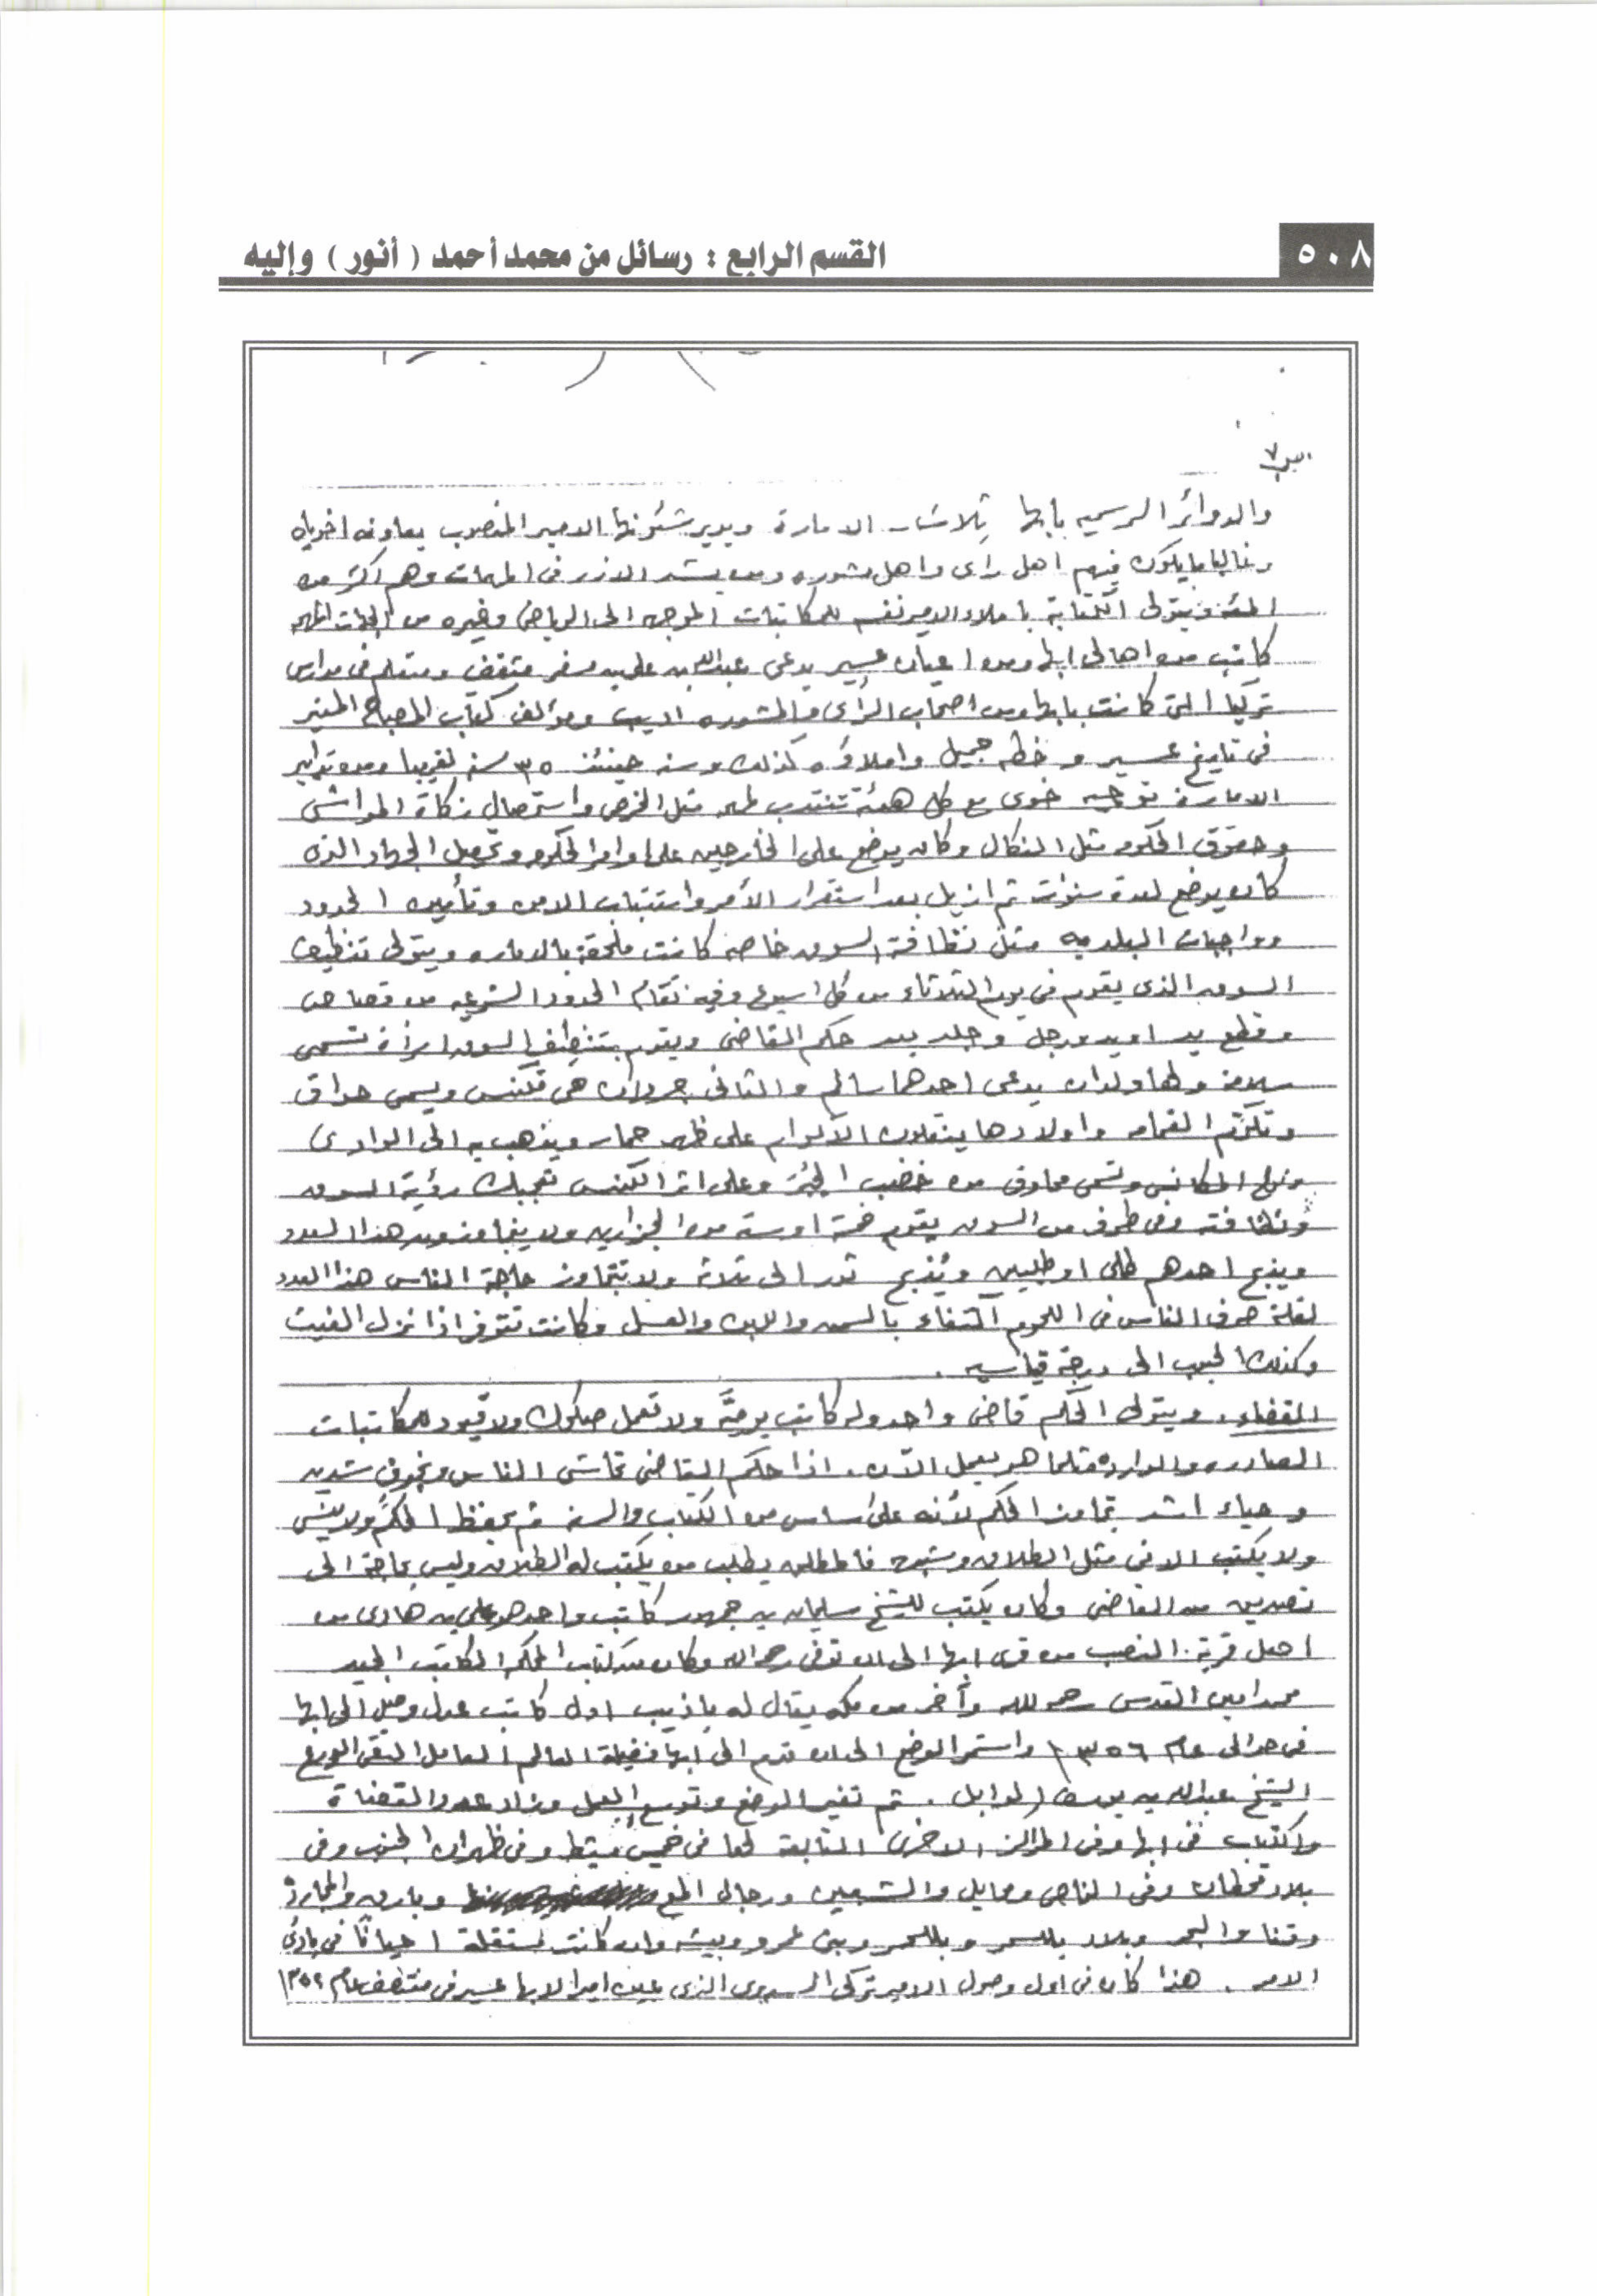 ٥٠٨
القسم الرابع : رسائل من محمد أحمد ( أنور ) وإليه
٧
والدوائر الرسميه بابها ثلاث الامارة ويدير شئونها الامير المنصوب يعاونه اخوياه
وغالبا ما يكون فيهم اهل راى واهل مشوره ومن يشد الازر فى المهمات وهم اكثر من
المئه ويتولى الكتابة باملاء الامير نفسه للمكاتبات الموجهه الى الرياض وغيره من الجهات المهمه
كاتب من اهالى ابها ومن اعيان عسير يدعى عبدالله بن على بن مسفر مثقف ومتعلم فى مدارس
تركيا التى كانت بابها ومن اصحاب الرأى والمشوره اديب ومؤلف كتاب المصباح المنير
فى تاريخ عسير وخطه جميل واملاؤه كذلك وسنه حينئذ ٣٥ سنه تقريبا ومن تدابير
الامارة توجيه خوى مع كل هيئة تنتدب لمهمه مثل الخرص واستحصال زكاة المواشى
وحقوق الحكومه مثل النكال وكان يوضع على الخارجين على اوامر الحكومه وتحصيل الجهاد الذى
كان يوضع لعدة سنوات ثم ازيل بعد استقرار الأمر واستتباب الامن وتأمين الحدود
وواجبات البلديه مثل نظافة السوق خاصه كانت ملحقة بالاماره ويتولى تنظيف
السوق الذى يقوم فى يوم الثلاثاء من كل اسبوع وفيه تقام الحدود الشرعيه من قصاص
وقطع يد او يد ورجل وجلد بعد حكم القاضى ويقوم بتنظيف السوق امرأة تسمى
سلامه ولها ولدان يدعى احدهما سالم والثانى جردان هى تكنس ويسمى حواق
وتكوّم القمامه واولادها ينقلون الاكوام على ظهر حمار ويذهب به الى الوادى
ونوع المكانس وتسمى محاوق من خضب وعلى اثر الكنس تعجبك رؤية السوق
ونظافته وفى طرف من السوق يقوم خمسة او ستة من الجزارين ولا يتجاوزون هذا العدد
ويذبح احدهم طلى او طليين ويُذبح ثور الى ثلاثه ولا تتجاوز حاجة الناس هذا العدد
لقلة صرف الناس فى اللحوم اكتفاء بالسمن واللبن والعسل وكانت تتوفر اذا نزل الغيث
وكذلك الحبوب الى درجة قياسيه .
القضاء . ويتولى الحكم قاضى واحد وله كاتب يوميَّه ولا تعمل صكوك ولا قيود للمكاتبات
الصادره والوارده مثلما هو يعمل الآن . اذا حكم القاضى تحاشى الناس وبخوف شديد
وحياء اشد تجاوز الحكم لأنه على اساس من الكتاب والسنه ثم يحفظ الحكم ولا ينسى
ولا يكتب الا فى مثل الطلاق وشبهه فالمطلق يطلب من يكتب له الطلاق وليس بحاجة الى
تصديق من القاضى وكان يكتب للشيخ سليمان بن جمهور كاتب واحد هو على بن هادى من
اهل قرية النصب من قرى ابها الى ان توفى رحمه الله وكان من كتاب المحكمه الكاتب الجيد
محمد امين القدسى رحمه الله وآخر من مكه يقال له باذيب اول كاتب عدل وصل الى ابها
فى حوالى عام ١٣٥٦ واستمر الوضع الى ان قدم الى ابها فضيلة العالم العامل التقى الورع
الشيخ عبدالله بن يوسف الوابل . ثم تغير الوضع وتوسع العمل وزاد عدد القضاة
والكتاب فى ابها وفى المراكز الاخرى التابعة لها فى خميس مشيط وفى ظهران الجنوب وفى
بلاد قحطان وفى النماص ومحايل والشعبين ورجال المع وبارق والمجارده
وقنا والبحر وبلاد بللسمر وبللحمر وبنى عمرو وبيشه وان كانت مستقلة احيانًا فى بادئ
الامر . هذا كان فى اول وصول الامير تركى السديرى الذى عين اميرا لابها عسير فى منتصف عام ١٣٥٢